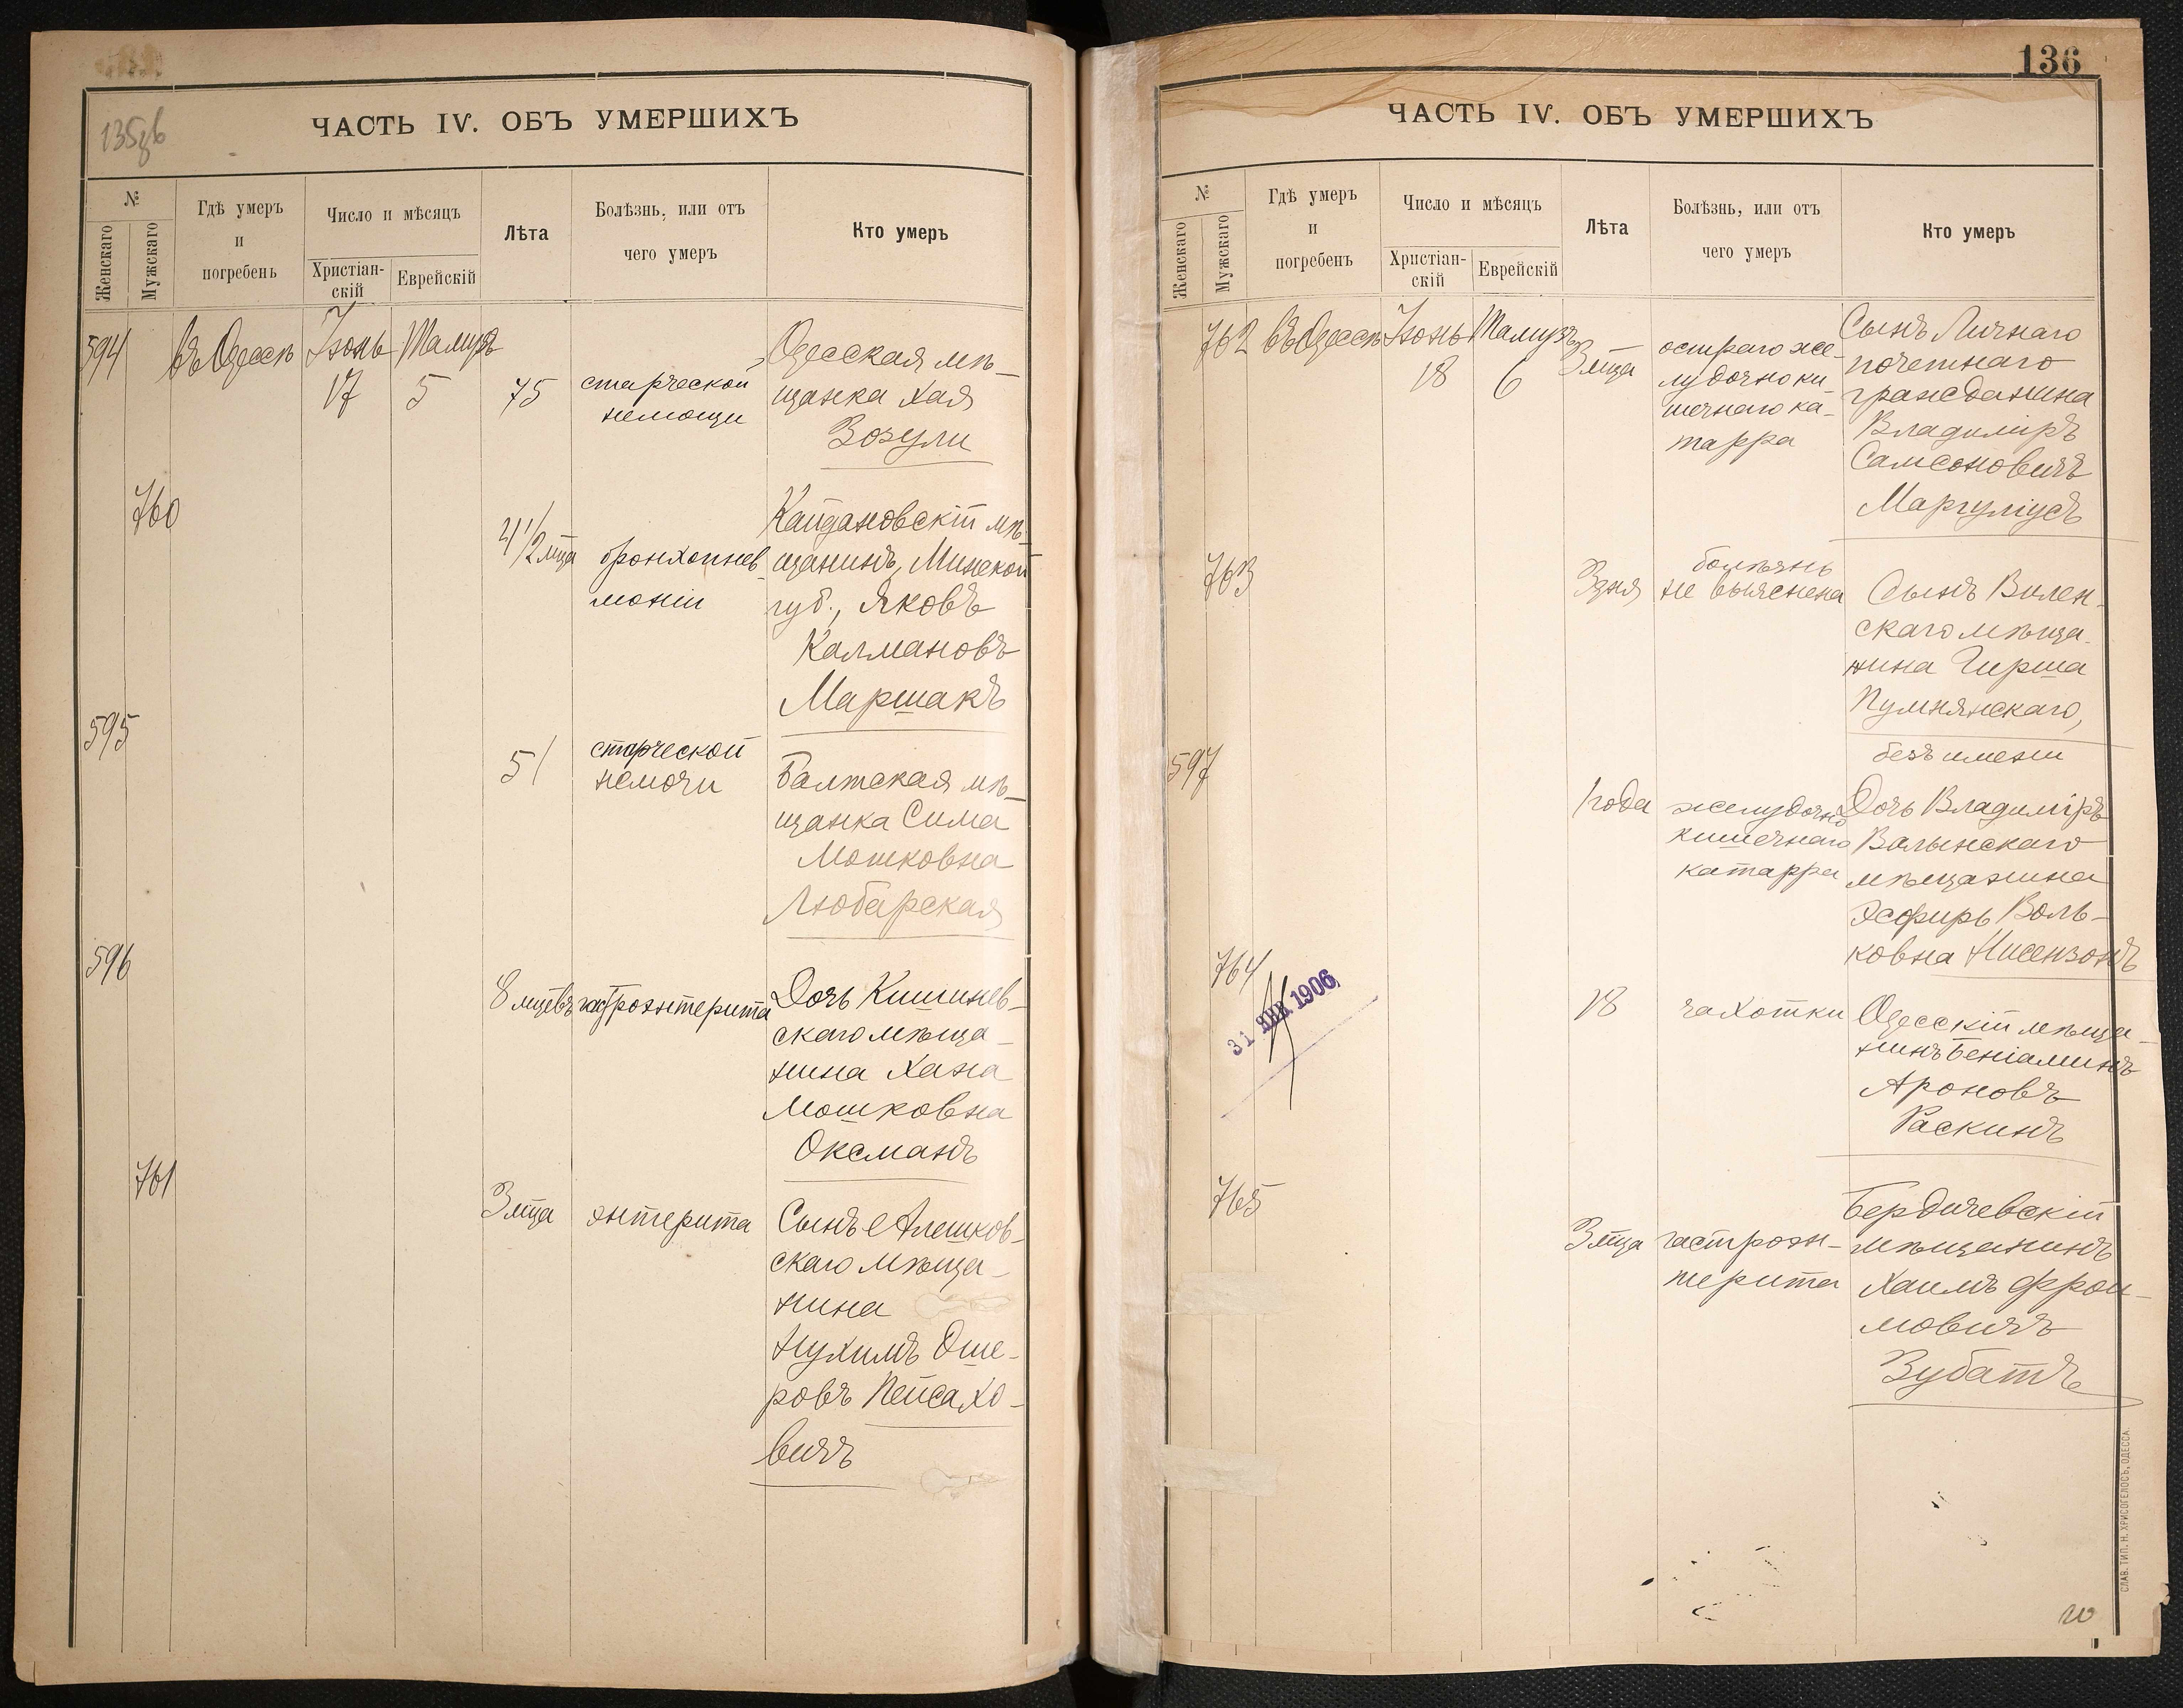 135об
ЧАСТЬ IV. ОБЪ УМЕРШИХЪ
№
Женскаго
Мужскаго
Гдѣ умеръ
и
погребенъ
Число и мѣсяцъ
Христіан-
скій
Еврейскій
Лѣта
Болѣзнь, или отъ
чего умеръ
Кто умеръ
594 въ Одессѣ Іюнь Тамузъ
17 5 75
старческой
немощи
Одесская мѣ-
щанка Хая
Возули
760
4 1/2 мѣца
бронхопнев-
моніи
Кайдановскій мѣ-
щанинъ, Минской
губ., Яковъ
Калмановъ
Маршакъ
595
51
старческой
немочи
Балтская мѣ-
щанка Сима
Мошковна
Любарская
596
8 мцевъ гастроэнтерита
Дочь Кишинев-
скаго мѣща-
нина Хана
Мошковна
Оксманъ
761
3 мца энтерита
Сынъ Алешков-
скаго мѣща-
нина
Нухимъ Оше-
ровъ Пейсахо-
вичъ
136
ЧАСТЬ IV. ОБЪ УМЕРШИХЪ
№
Женскаго
Мужскаго
Гдѣ умеръ
и
погребенъ
Число и мѣсяцъ
Христіан-
скій
Еврейскій
Лѣта
Болѣзнь, или отъ
чего умеръ
Кто умеръ
762 въ Одессѣ Іюнь Тамузъ
18 6
3 мца
остраго же-
лудочно ки-
шечнаго ка-
тарра
Сынъ Личнаго
почетнаго
гражданина
Владиміръ
Самсоновичъ
Маргуліусъ
763
3 дня
болѣзнь
не выяснена
Сынъ Вилен-
скаго мѣща-
нина Гирша
Пумнянскаго,
безъ имени
597
1 года
желудочно
кишечнаго
катарра
Дочь Владиміръ
Волынскаго
мѣщанина
Эсфирь Воль-
ковна Нисензонъ
764
31 ЯНВ 1906
18 чахотки
Одесскій мѣща-
нинъ Беніаминъ
Ароновъ
Раскинъ
765
3 мца
гастроэн-
терита
Бердичевскій
мѣщанинъ
Хаимъ Фрои-
мовичъ
Зубатъ
СЛАВ. ТИП. Н. ХРИСОГЕЛОСЪ, ОДЕССА.